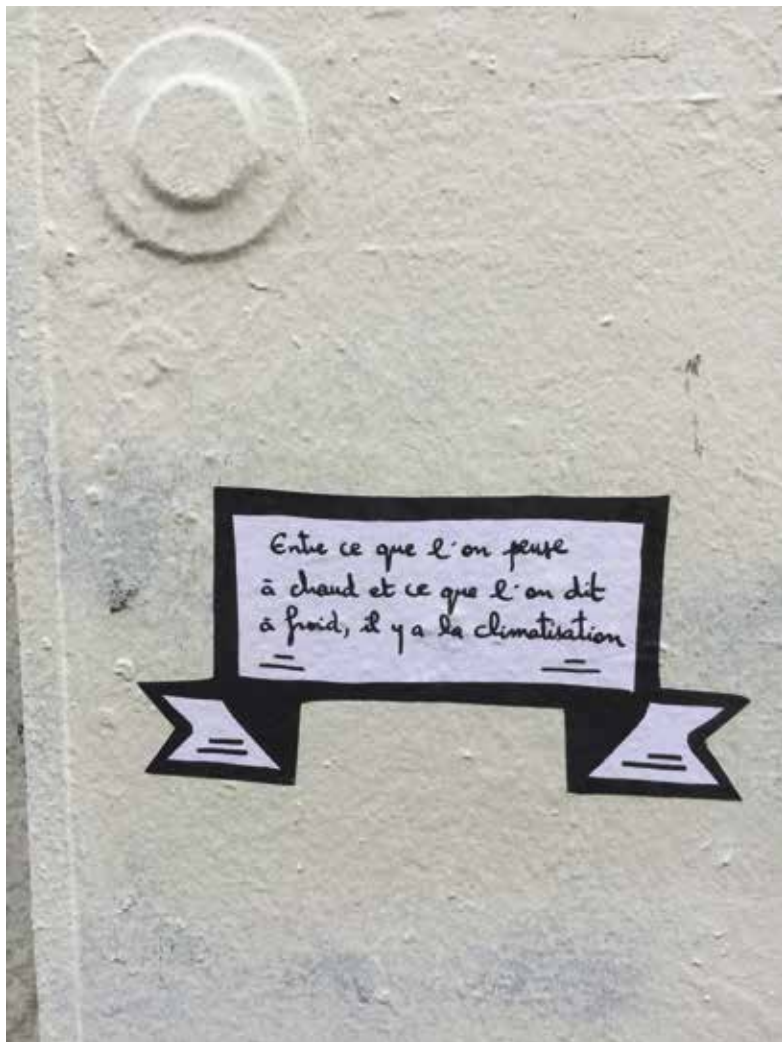 Entre ce que l'on pense
à chaud et ce que l'on dit
à froid, il y a la climatisation